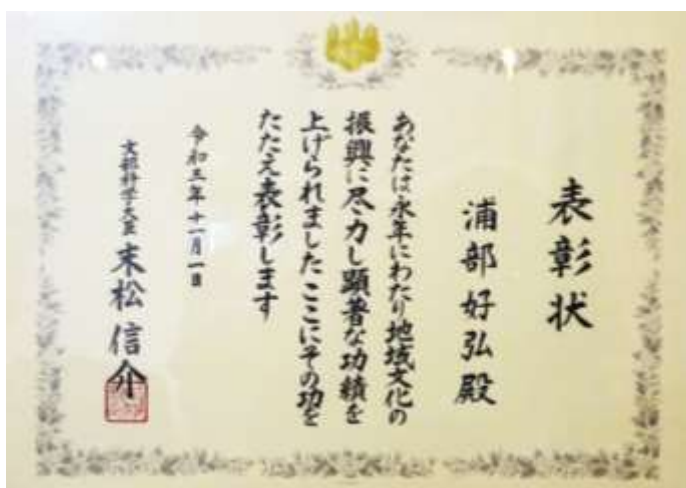 表彰状
浦部好弘殿
あなたは永年にわたり地域文化の
振興に尽力し顕著な功績を
上げられましたここにその功を
たたえ表彰します
令和三年十一月一日
文部科学大臣 末松信介